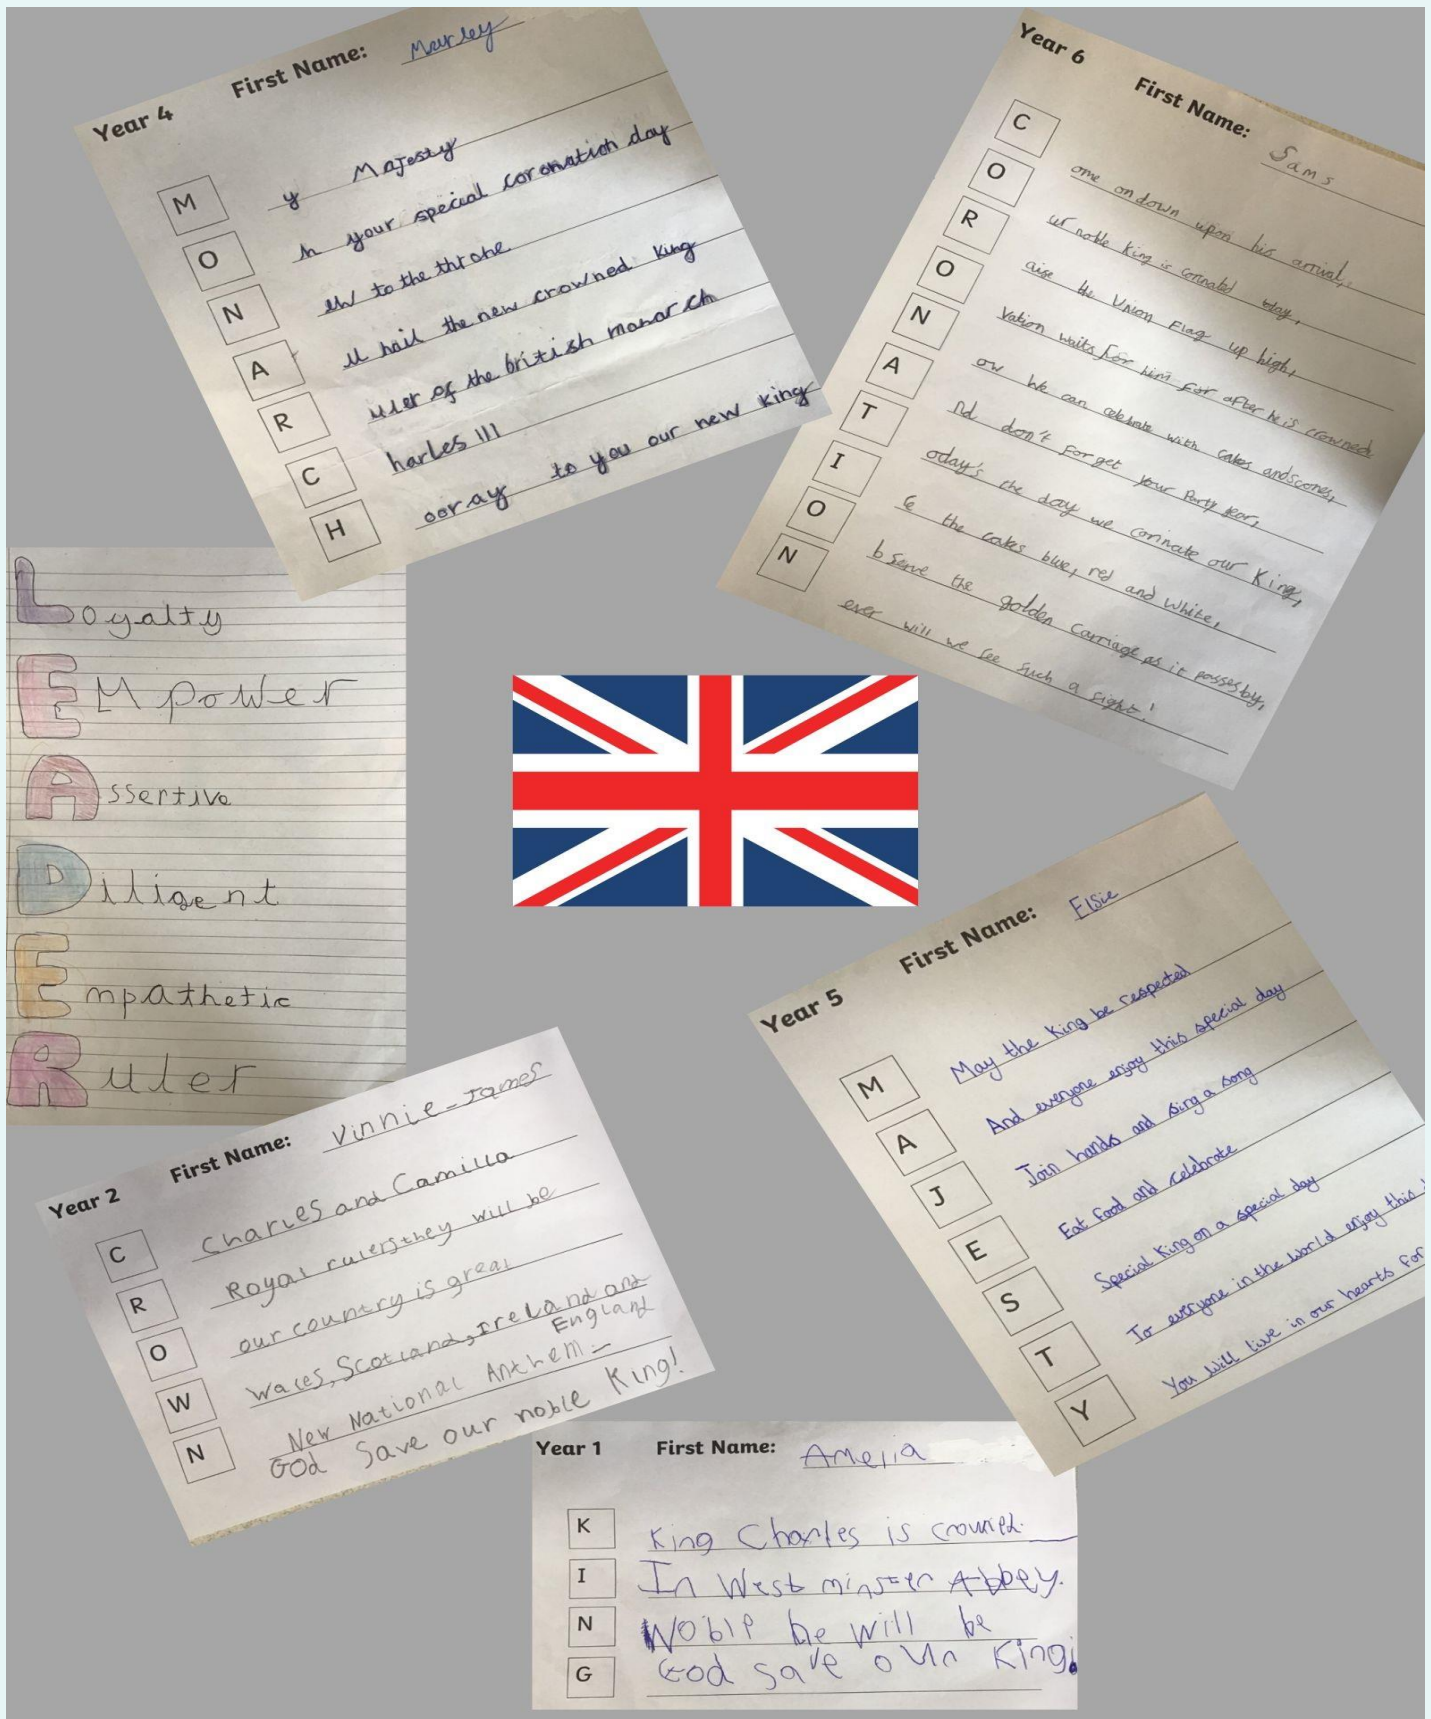 Year 4 First Name: Marley
M y Majesty
O n your special coronation day
N ew to the throne
A ll hail the new crowned king
R uler of the british monarch
C harles III
H ooray to you our new king
Year 6 First Name: Sams
C ome on down upon his arrival,
O ur noble king is corinated today,
R aise the Union Flag up high,
O vation waits for him for after he is crowned
N ow we can celebrate with cakes and scones,
A nd don't forget your Party gear,
T oday's the day we corinate our King,
I ce the cakes blue, red and white,
O bserve the golden carriage as it passes by,
N ever will we see such a sight!
Loyalty
EMpower
Assertive
Diligent
Empathetic
Ruler
Year 5 First Name: Elsie
M May the King be respected
A And everyone enjoy this special day
J Join hands and sing a song
E Eat food and celebrate
S Special King on a special day
T To everyone in the world enjoy this
Y You will live in our hearts for
Year 2 First Name: Vinnie-James
C Charles and Camilla
R Royal rulers they will be
O our country is great
W Wales, Scotland, Ireland and
England
N New National Anthem -
God Save our noble King!
Year 1 First Name: Amelia
K King Charles is crowned.
I In Westminster Abbey.
N Noble he will be
G God save our King!